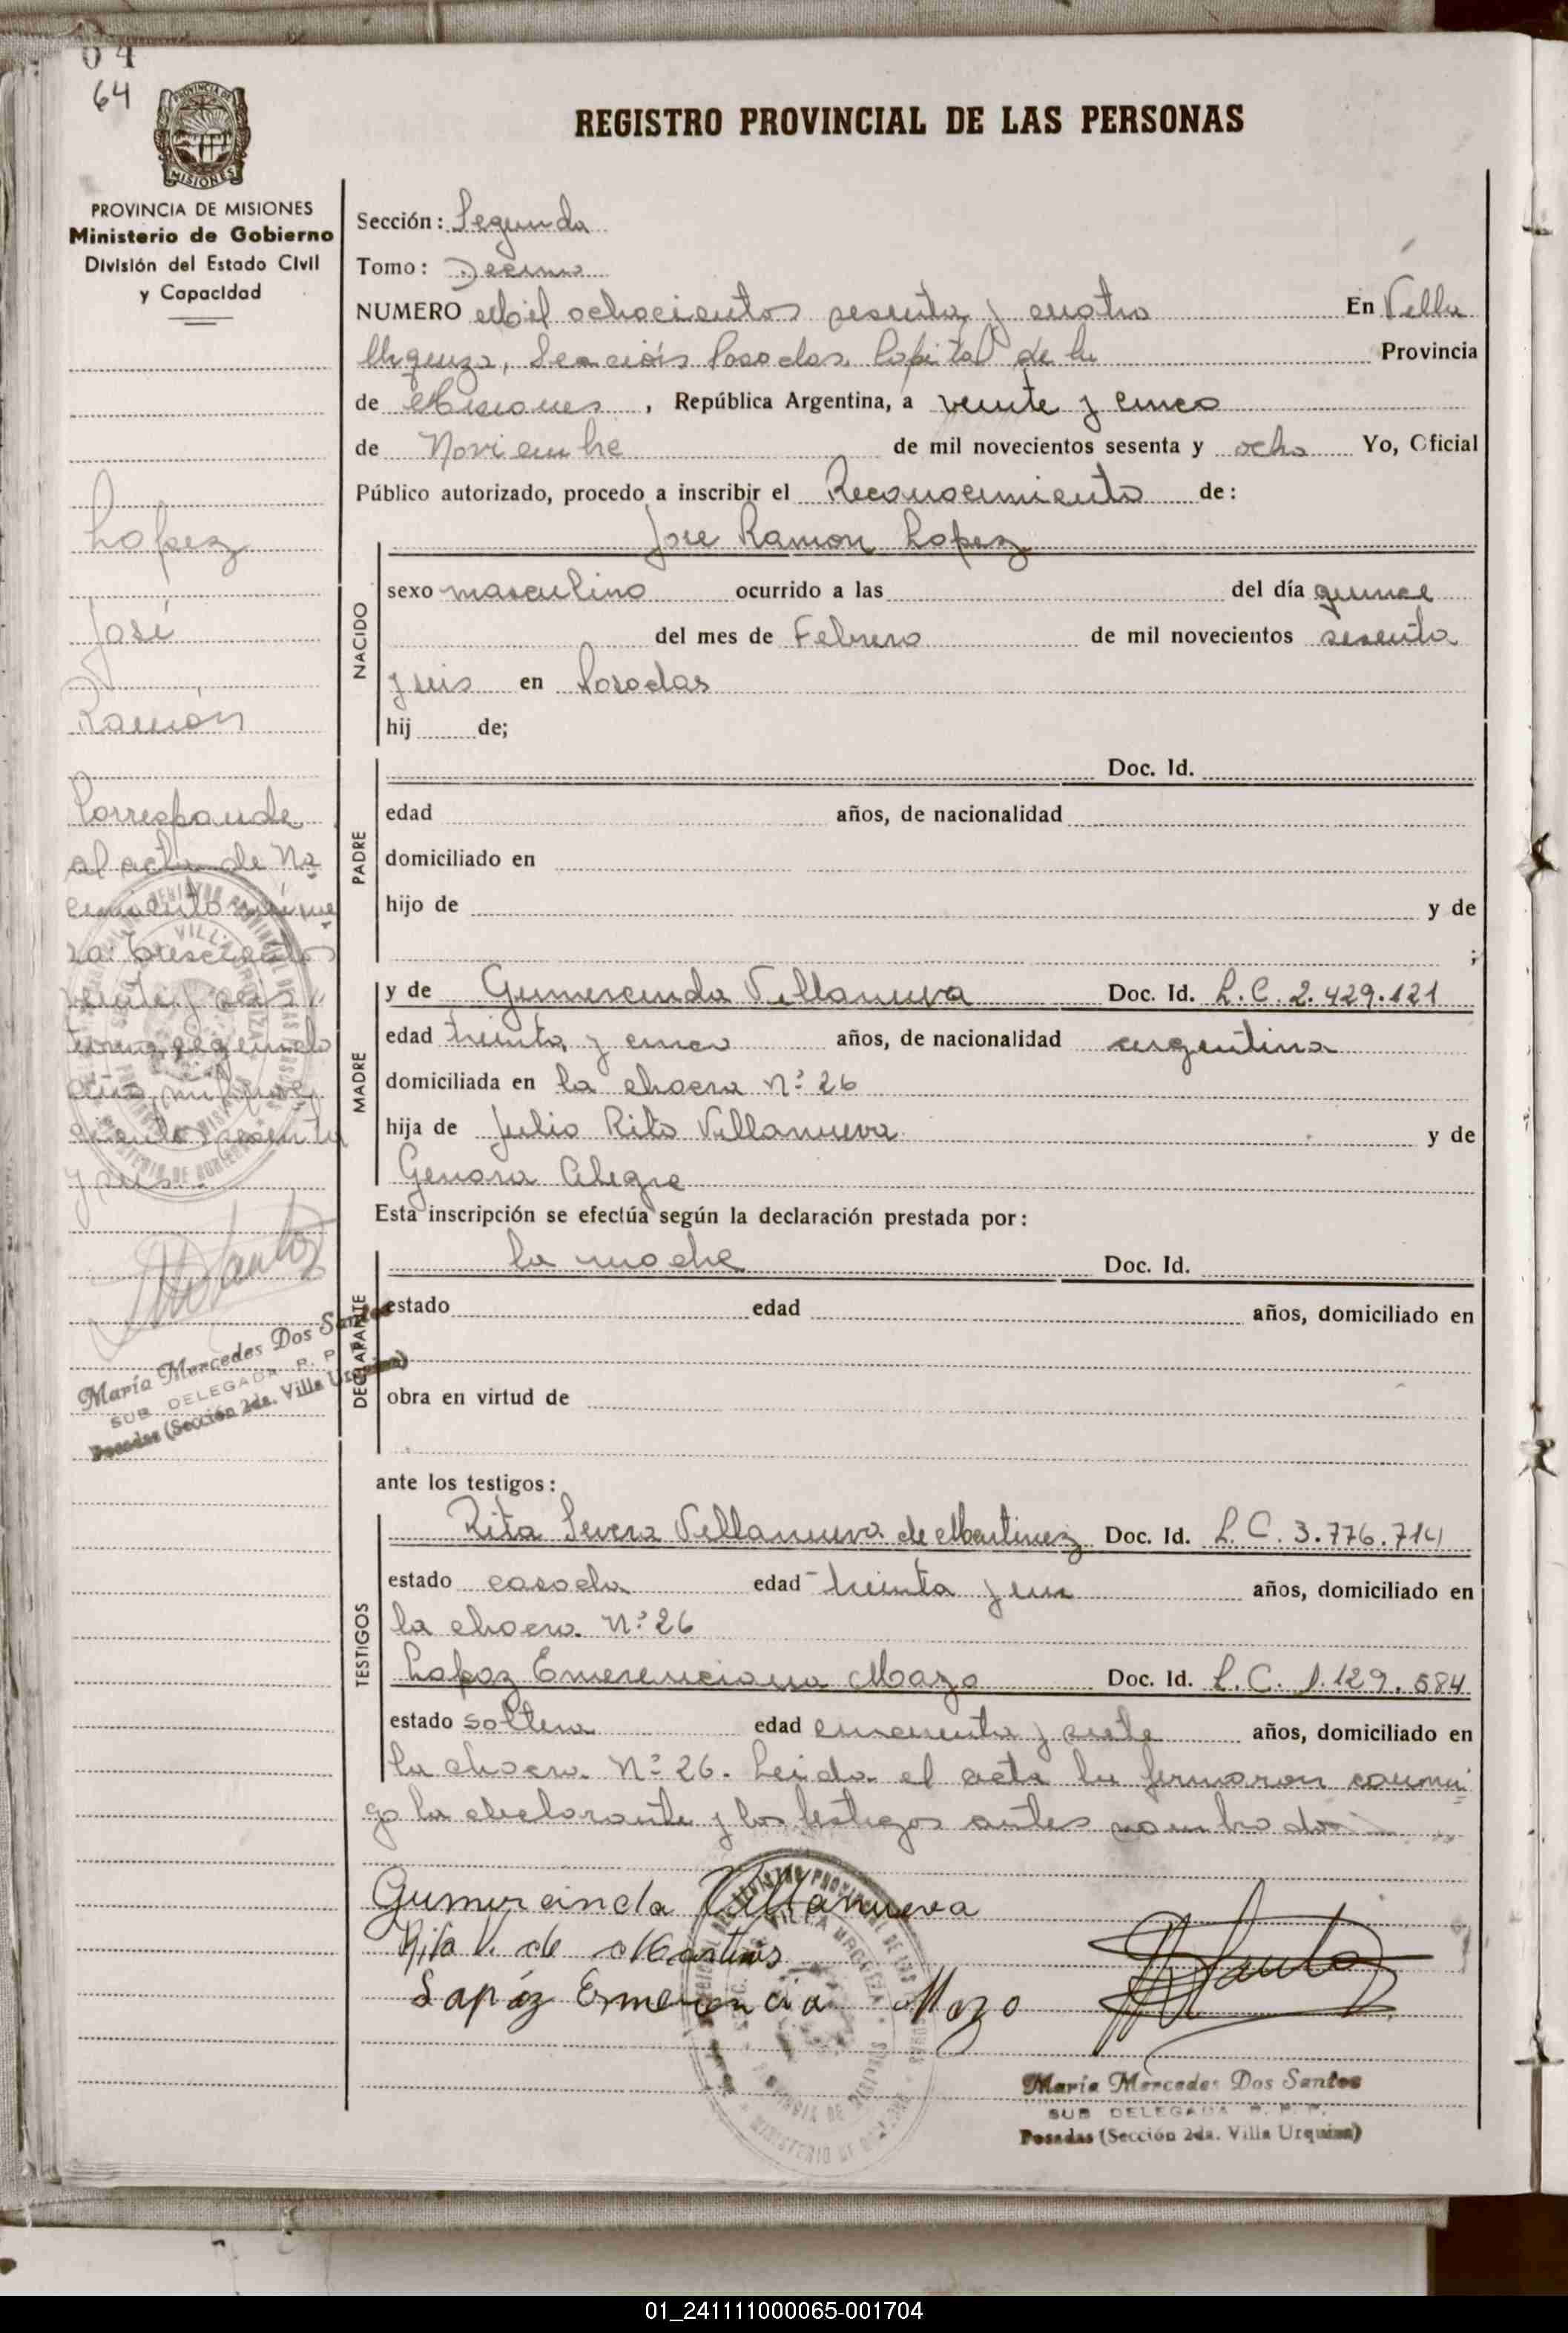 04
64
PROVINCIA DE
MISIONES
REGISTRO PROVINCIAL DE LAS PERSONAS
PROVINCIA DE MISIONES
Ministerio de Gobierno
División del Estado Civil
y Capacidad
Lopez
José
Ramón
Corresponde
al acta de Na
cimiento núme
ro: trescientos
veinte y seis,
tomo segundo
año, mil nove
ciento sesenta
y seis.
María Mercedes Dos Santos
SUB DELEGADA R. P. P.
Posadas (Sección 2da. Villa Urquiza)
Sección: Segunda
Tomo: Decimo
NUMERO Mil ochocientos sesenta y cuatro En Villa
Urquiza, Sección Posadas, Capital de la Provincia
de Misiones, República Argentina, a veinte y cinco
de Noviembre de mil novecientos sesenta y ocho Yo, Oficial
Público autorizado, procedo a inscribir el Reconocimiento de:
Jose Ramon Lopez
NACIDO
sexo masculino ocurrido a las del día quince
del mes de Febrero de mil novecientos sesenta
y seis en Posadas
hij de;
PADRE
Doc. Id.
edad años, de nacionalidad
domiciliado en
hijo de y de
;
MADRE
y de Gumercinda Villanueva Doc. Id. L.C. 2.429.121
edad treinta y cinco años, de nacionalidad argentina
domiciliada en la chacra Nº 26
hija de Julio Rito Villanueva y de
Genara Alegre
Esta inscripción se efectúa según la declaración prestada por:
DECLARANTE
la madre Doc. Id.
estado edad años, domiciliado en
obra en virtud de
ante los testigos:
TESTIGOS
Rita Severa Villanueva de Martinez Doc. Id. L.C. 3.776.714
estado casada edad treinta y un años, domiciliado en
la chacra Nº 26
Lapoz Emerenciana Mazo Doc. Id. L.C. 1.129.584
estado soltera edad cincuenta y siete años, domiciliado en
la chacra Nº 26. Leida el acta la firmaron conmi
go la declarante y los testigos antes nombrados
Gumercinda Villanueva
Rita V. de Martines
Lapóz Emerencia Mazo
María Mercedes Dos Santos
SUB DELEGADA R. P. P.
Posadas (Sección 2da. Villa Urquiza)
01_241111000065-001704